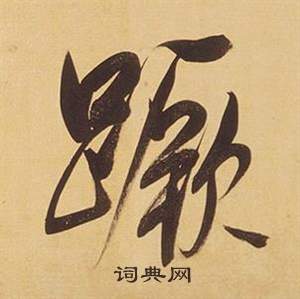 蹶
词典网